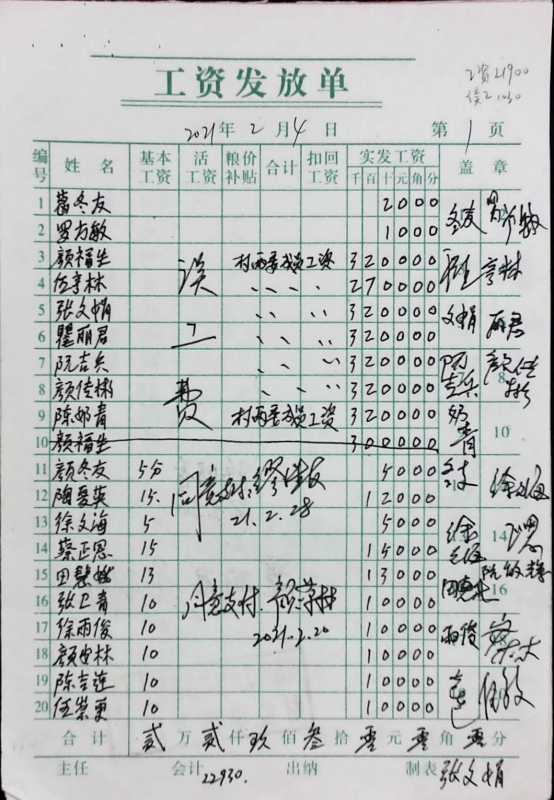 工资发放单
工资21900
误工1030
2021年 2月4日 第1页
编号 姓名 基本工资 活工资 粮价补贴 合计 扣回工资 实发工资 千百十元角分 盖章
1 葛冬友 2000
2 罗方敏 1000
3 颜福生 村两委成员工资 320000
4 伍亨林 270000 亨林
5 张文娟 320000 文娟
6 瞿丽君 320000 丽君
7 阮吉兵 320000 阮吉兵
8 颜佳彬 320000 颜佳彬
9 陈郁青 村两委成员工资 320000 郁青
10 颜福生 300000
误工费
11 颜冬友 5分 5000
12 陶夏英 15. 12000
13 徐文海 5 5000
14 蔡正恩 15 15000
15 田慧 13 13000
16 张卫青 10 10000
17 徐雨俊 10 10000 雨俊
18 颜安林 10 10000
19 陈吉莲 10 10000
20 伍荣更 10 10000
同意支付
21.2.28
同意支付
2021.2.20
合计 贰万贰仟玖佰叁拾零元零角零分
主任 会计 出纳 制表 张文娟
22930.